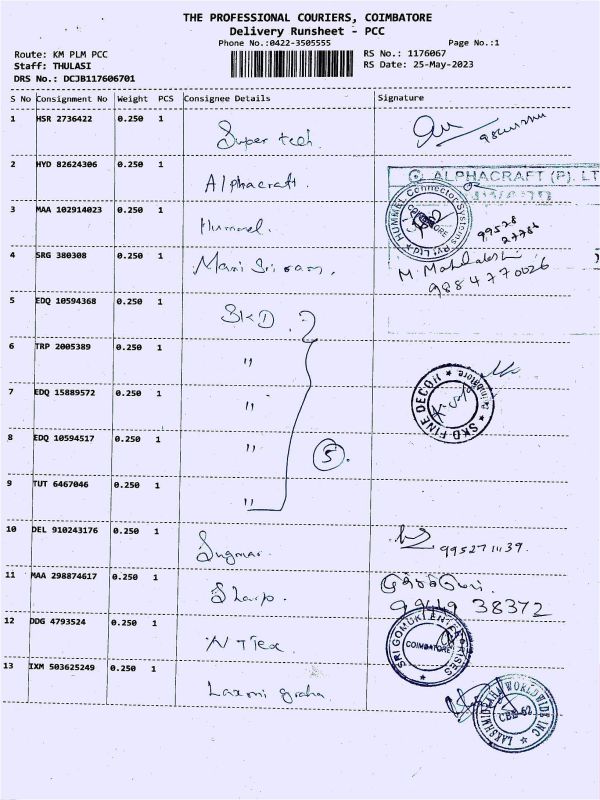 THE PROFESSIONAL COURIERS, COIMBATORE
Delivery Runsheet - PCC
Phone No.:0422-3505555
Page No.:1
Route: KM PLM PCC
RS No.: 1176067
Staff: THULASI
RS Date: 25-May-2023
DRS No.: DCJB117606701
S No Consignment No Weight PCS Consignee Details Signature
1 HSR 2736422 0.250 1 Super tech.
2 HYD 82624306 0.250 1 Alphacraft.
ALPHACRAFT (P). LT
3 MAA 102914023 0.250 1 Hummel.
HUMMEL Connector Systems Pvt Ltd
99528
27786
4 SRG 380308 0.250 1 Mani Sriram,
9884770026
5 EDQ 10594368 0.250 1 SKD.
6 TRP 2005389 0.250 1 "
7 EDQ 15889572 0.250 1 "
SKD FINE DECOR Coimbatore
8 EDQ 10594517 0.250 1 "
5
9 TUT 6467046 0.250 1 "
10 DEL 910243176 0.250 1
9952711139.
11 MAA 298874617 0.250 1 Sharp.
99419 38372
12 DDG 4793524 0.250 1 N Tex
SRI GOMUKI ENTERPRISES COIMBATORE
13 IXM 503625249 0.250 1 Laxmi graha.
LAKSHMIGRAHA WORLDWIDE INC CBE-62